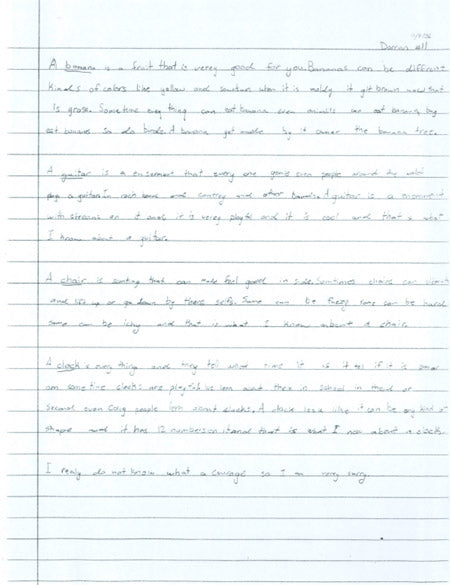 Darrian #11
A banana is a fruit that is verey good for you. Bananas can be different
Kinds of colors like yellow and when it is moldy it git brown and that
Is grose. Sometime evry thing can eat banana even animals can eat banana, bug
eat bananas so do birds. A banana get made by it the banana tree.
A guitar is a that every one even people around the
play a guitar In rock band and contry and other Bands. A guitar is a
with on it and it is verey playful and it is cool and that is what
I know about a guitar.
A chair is that can make feel good in side. Somtimes chairs can
and lift up or go down by there self. Some can be fuzzy some can be hard
some can be ichy and that is what I know about a chair.
A clock is evry thing and they tell what time it is it tell if it is
some time clocks are playful we lern about them in school in
second even people lern about clocks. A clock look like it can be any kind of
shape and it has 12 numbers on it and that is what I now about a clock.
I realy do not know what a is so I am very sorry.